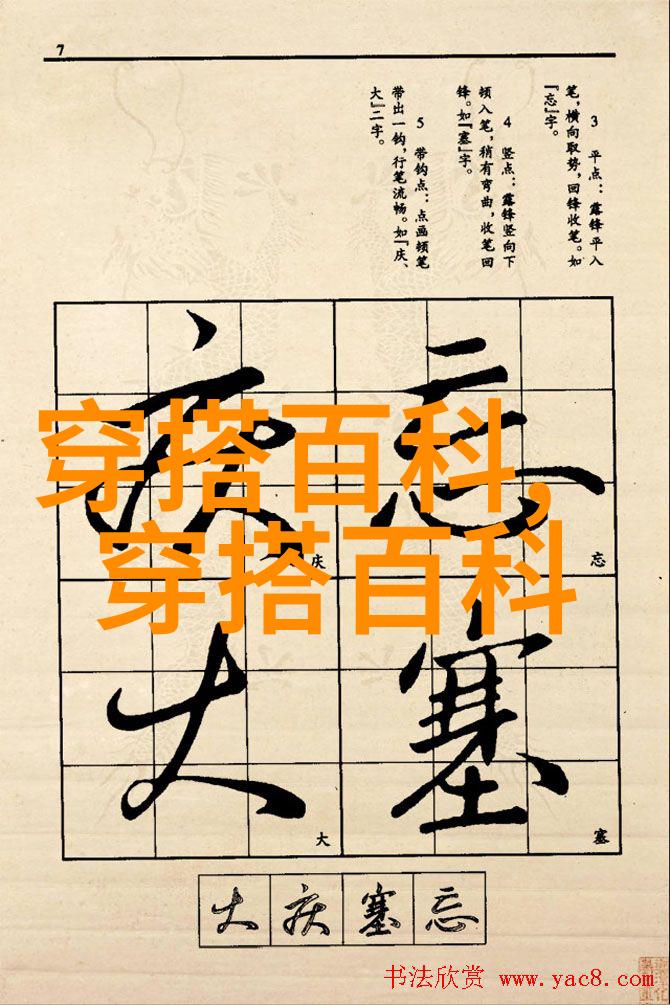 7
3 平点：露锋平入
笔，横向取势，回锋收笔。如
『忘』字。
4 竖点：露锋竖向下
顿入笔，稍有弯曲，收笔回
锋。如『塞』字。
5 带钩点：点画顿笔
带出一钩，行笔流畅。如『庆、
大』二字。
忘
庆
穿搭百科，
穿搭百科
忘
庆
塞
大
塞
大
大庆塞忘
书法欣赏 www.yac8.com